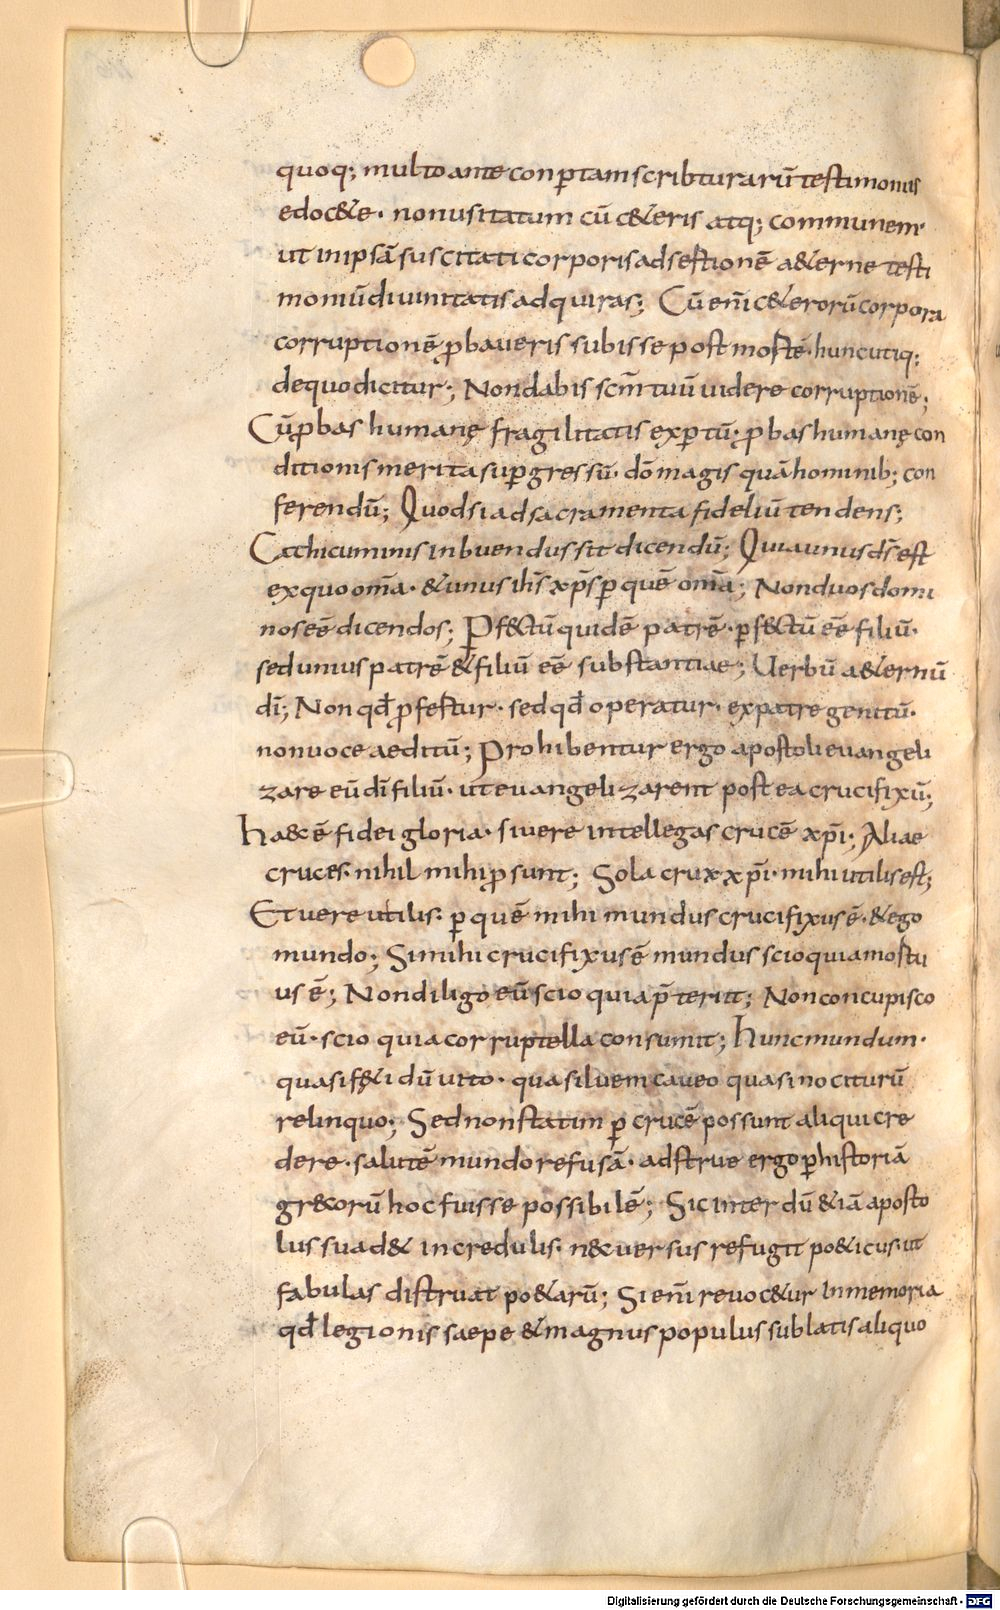 quoq; multo ante conptam scribturarū testimoniis
edoc&e · non usitatum cū c&eris atq; communem·
ut in ipsā suscitati corporis adsestionē a&erne testi
moniū diuinitatis adquiras; Cū enī c&erorū corpora
corruptionē ꝓbaueris subisse post mostē· hunc utiq;
de quo dicitur; Non dabis scm̄ tuū uidere corruptionē;
Cū ꝓbas humanę fragilitatis exꝑtū· ꝓbas humanę con
ditionis merita suꝑgressū· dō magis quā hominib; con
ferendū; Quod si ad sacramenta fideliū tendens;
Cathicuminis inbuendus sit dicendū; Quia unus ds̄ est
ex quo om̄a· & unus ih̄s xp̄s ꝑ quē om̄a; Non duos domi
nos eē dicendos; Ꝑf&ctū quidē patrē· ꝑf&ctū eē filiū·
sed unius patrē & filiū eē substantiae; Uerbū a&ernū
dī; Non qđ ꝓfestur· sed qđ operatur· ex patre genitū·
non uoce aeditū; Prohibentur ergo apostoli euangeli
zare eū dī filiū· ut euangelizarent postea crucifixū;
ha&c ē fidei gloria· si uere intellegas crucē xp̄i; Aliae
cruces· nihil mihi ꝓsunt; Sola crux xp̄i· mihi utilis est;
Et uere utilis· ꝑ quē mihi mundus crucifixus ē· & ego
mundo; Si mihi crucifixus ē mundus scio quia mostu
us ē; Non diligo eū scio quia p̄terit; Non concupisco
eū· scio quia corruptella consumit; hunc mundum·
quasi f&idū uito· quasi luem caueo quasi nociturū
relinquo; Sed non statim ꝑ crucē possunt aliqui cre
dere· salutē mundo refusā· adstrue ergo ꝑ historiā
gr&corū hoc fuisse possibilē; Sic interdū &iā aposto
lus suad& incredulis· n&c uersus refugit po&icus· ut
fabulas distruat po&arū; Si enī reuoc&ur in memoria
qđ legionis saepe & magnus populus sublatis aliquo
Digitalisierung gefördert durch die Deutsche Forschungsgemeinschaft · DFG